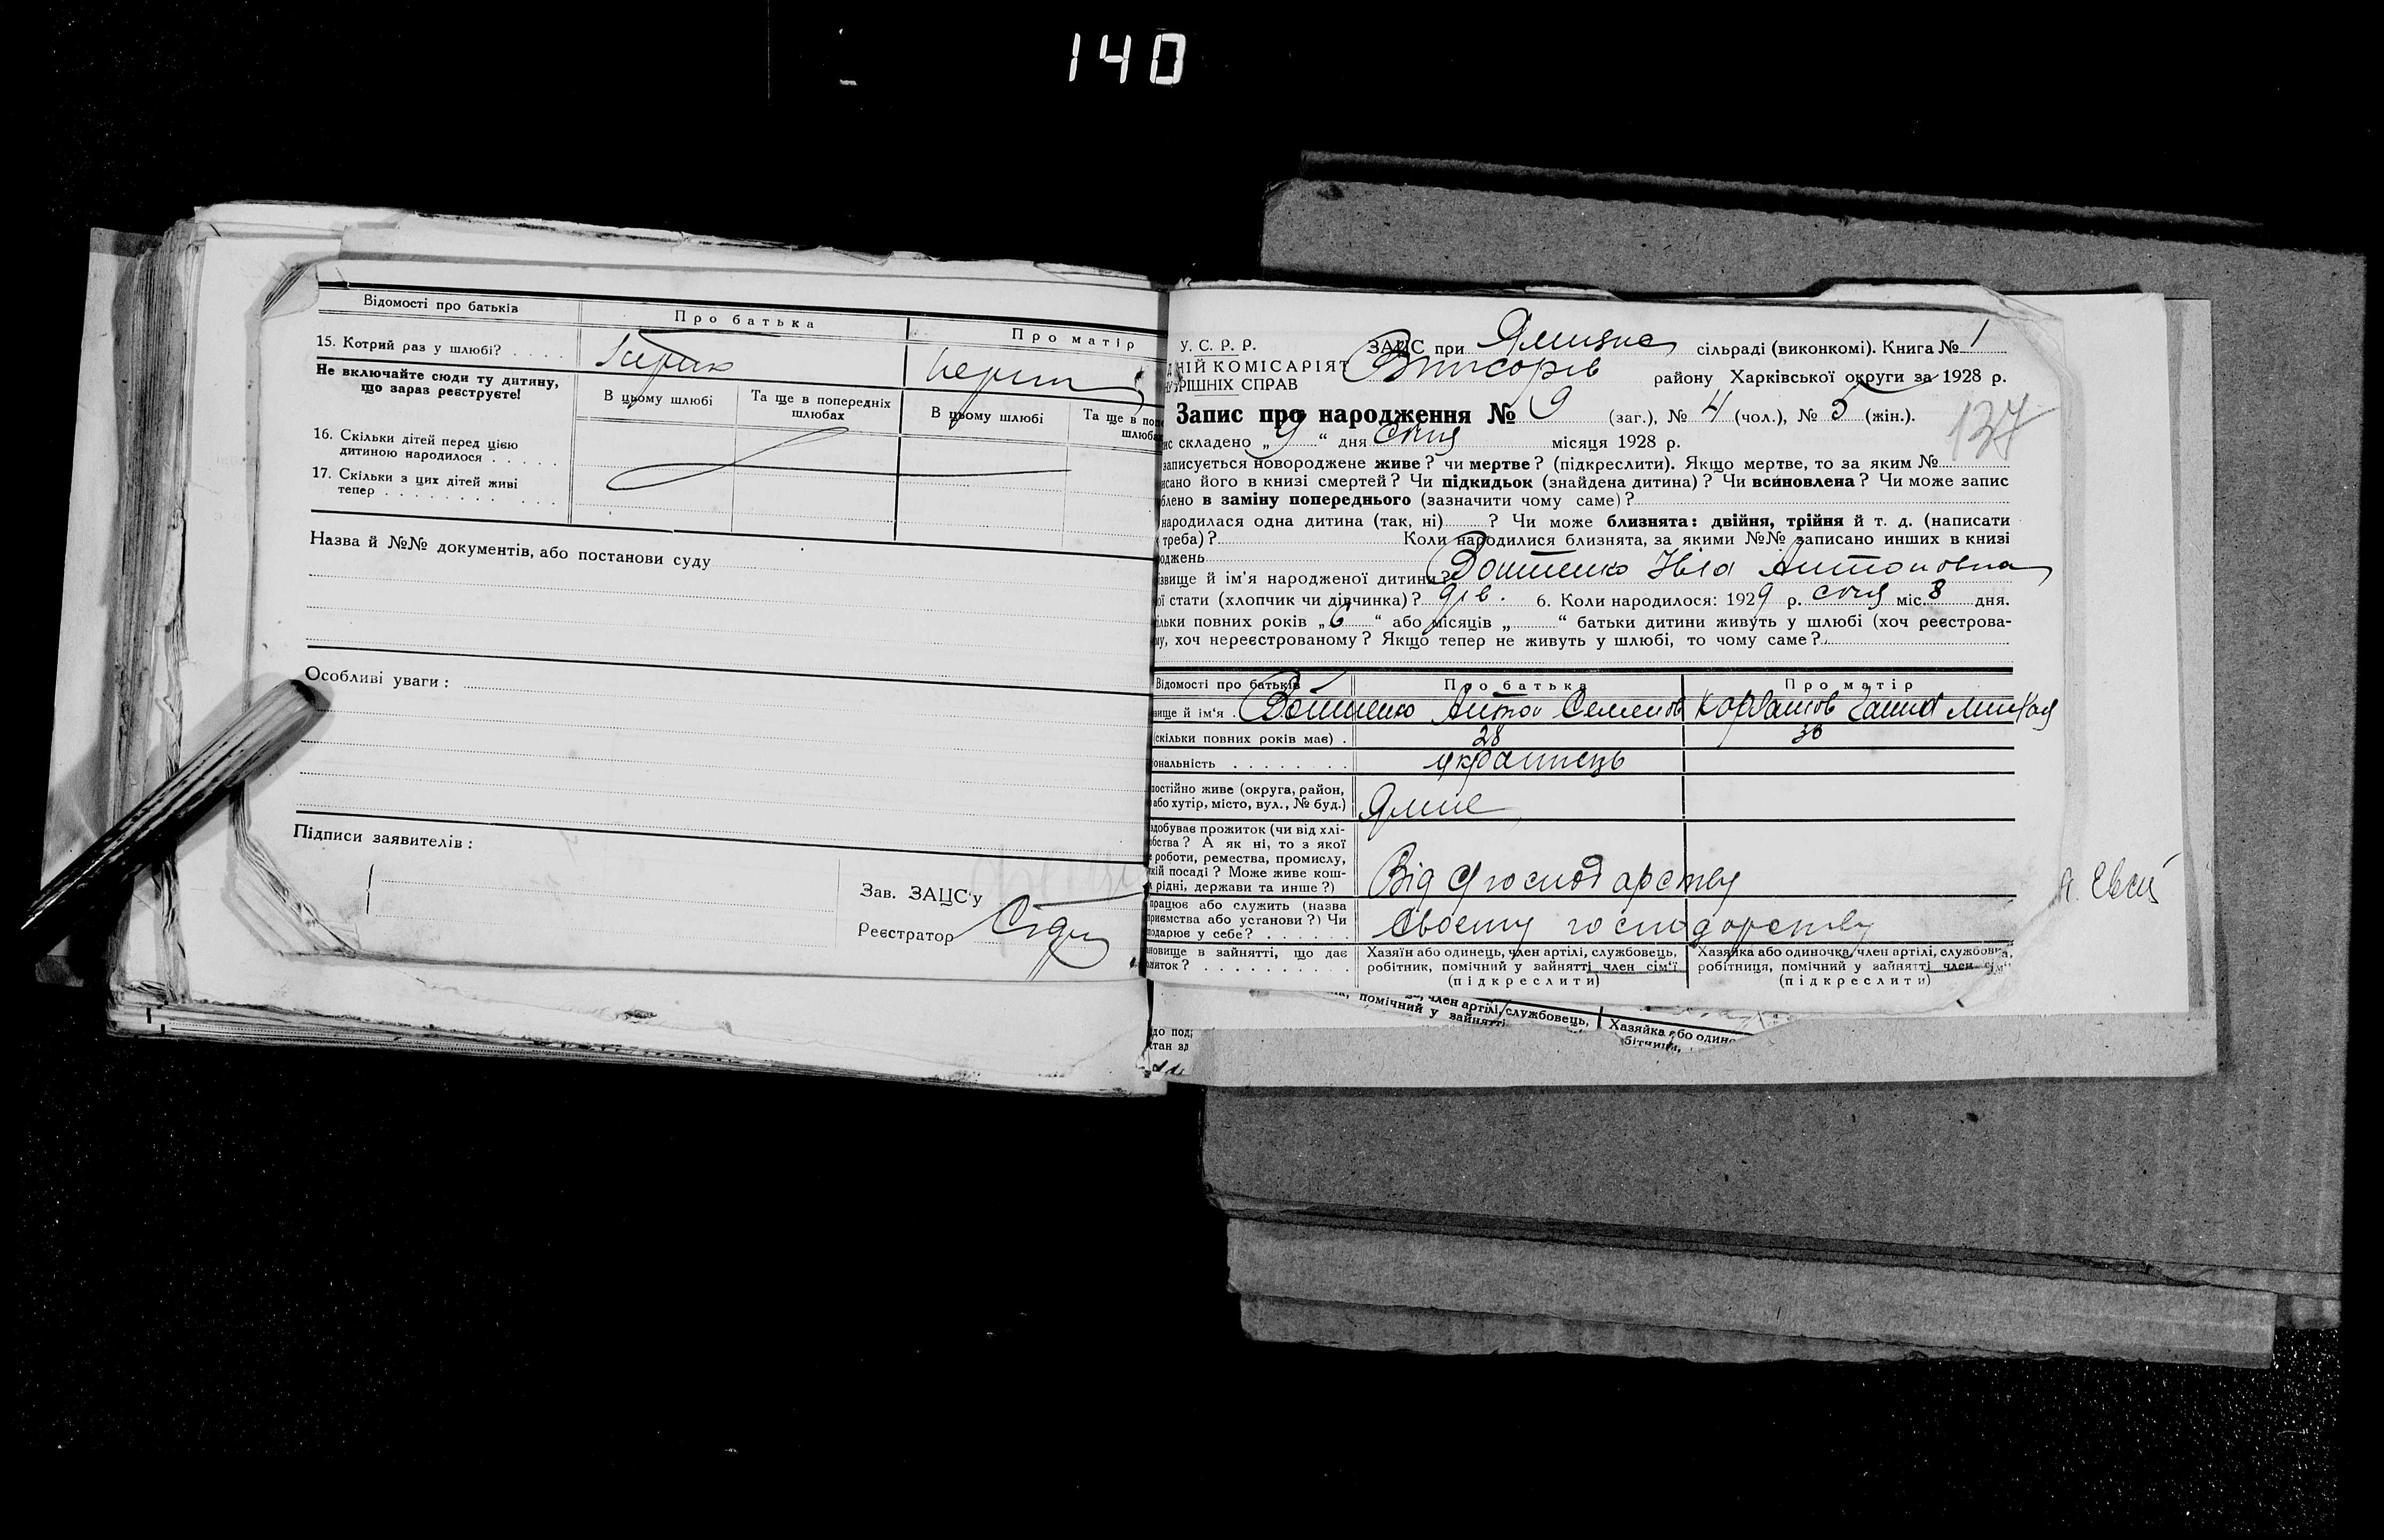 140
Відомості про батьків
Про батька
Про матір
15. Котрий раз у шлюбі? . . . .
Не включайте сюди ту дитину,
що зараз реєструєте!
В цьому шлюбі
Та ще в попередніх
шлюбах
В цьому шлюбі
Та ще в поп
шлюба
16. Скільки дітей перед цією
дитиною народилося . . . . .
17. Скільки з цих дітей живі
тепер . . . . . . . . . . . .
Назва й №№ документів, або постанови суду
Особливі уваги:
Підписи заявителів:
Зав. ЗАЦС'у
Реєстратор
У. С. Р. Р.
ЗАЦС при сільраді (виконкомі). Книга № 1
ДНІЙ КОМІСАРІЯТ
НУТРІШНІХ СПРАВ
району Харківської округи за 1928 р.
137
Запис про народження № 9 (заг.), № 4 (чол.), № 5 (жін.).
ис складено „ 9 “ дня січня місяця 1928 р.
записується новороджене живе? чи мертве? (підкреслити). Якщо мертве, то за яким №
исано його в книзі смертей? Чи підкидьок (знайдена дитина)? Чи всиновлена? Чи може запис
блено в заміну попереднього (зазначити чому саме)?
народилася одна дитина (так, ні) ? Чи може близнята: двійня, трійня й т. д. (написати
треба)? Коли народилися близнята, за якими №№ записано инших в книзі
оджень
ізвище й ім'я народженої дитини? Антоновна
ої стати (хлопчик чи дівчинка)? дів. 6. Коли народилось: 1929 р. січня міс. 8 дня.
ільки повних років „ 6 “ або місяців „ “ батьки дитини живуть у шлюбі (хоч реєстрова-
му, хоч нереєстрованому? Якщо тепер не живуть у шлюбі, то чому саме?
Відомості про батьків
Про батька
Про матір
вище й ім'я . Антон Семенов
(скільки повних років має) . 28
ональність . . . . . . . українець
постійно живе (округа, район,
або хутір, місто, вул., № буд.)
здобуває прожиток (чи від хлі-
обства? А як ні, то з якої
е роботи, ремества, промислу,
якій посаді? Може живе кош-
м рідні, держави та инше?)
Від господарству
працює або служить (назва
приємства або установи?) Чи
подарює у себе? . . . . .
Своєму господарству
новище в зайнятті, що дає
житок? . . . . . . . . . .
Хазяїн або одинець, член артілі, службовець,
робітник, помічний у зайнятті член сім'ї
(підкреслити)
Хазяйка або одиночка, член артілі, службовка,
робітниця, помічний у зайнятті член сім'ї
(підкреслити)
член артілі, службовець,
помічний у зайнятті
Хазяйка або одино
до под
стан зл